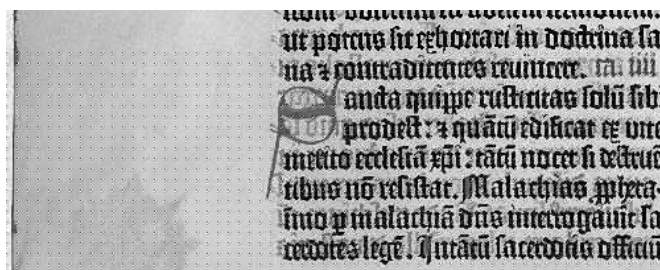 ut potens sit exhortari in doctrina sa
na ⁊ contradicentes reuincere.
Sancta quippe rusticitas solū sibi
prodest: ⁊ quātū edificat ex vite
merito ecclesiā xpi: tātū nocet si destruē
tibus nō resistat. Malachias ꝓpheta
īmo ꝑ malachiā dn̄s interrogauit sa
cerdotes legē. Intātū sacerdotis officiū